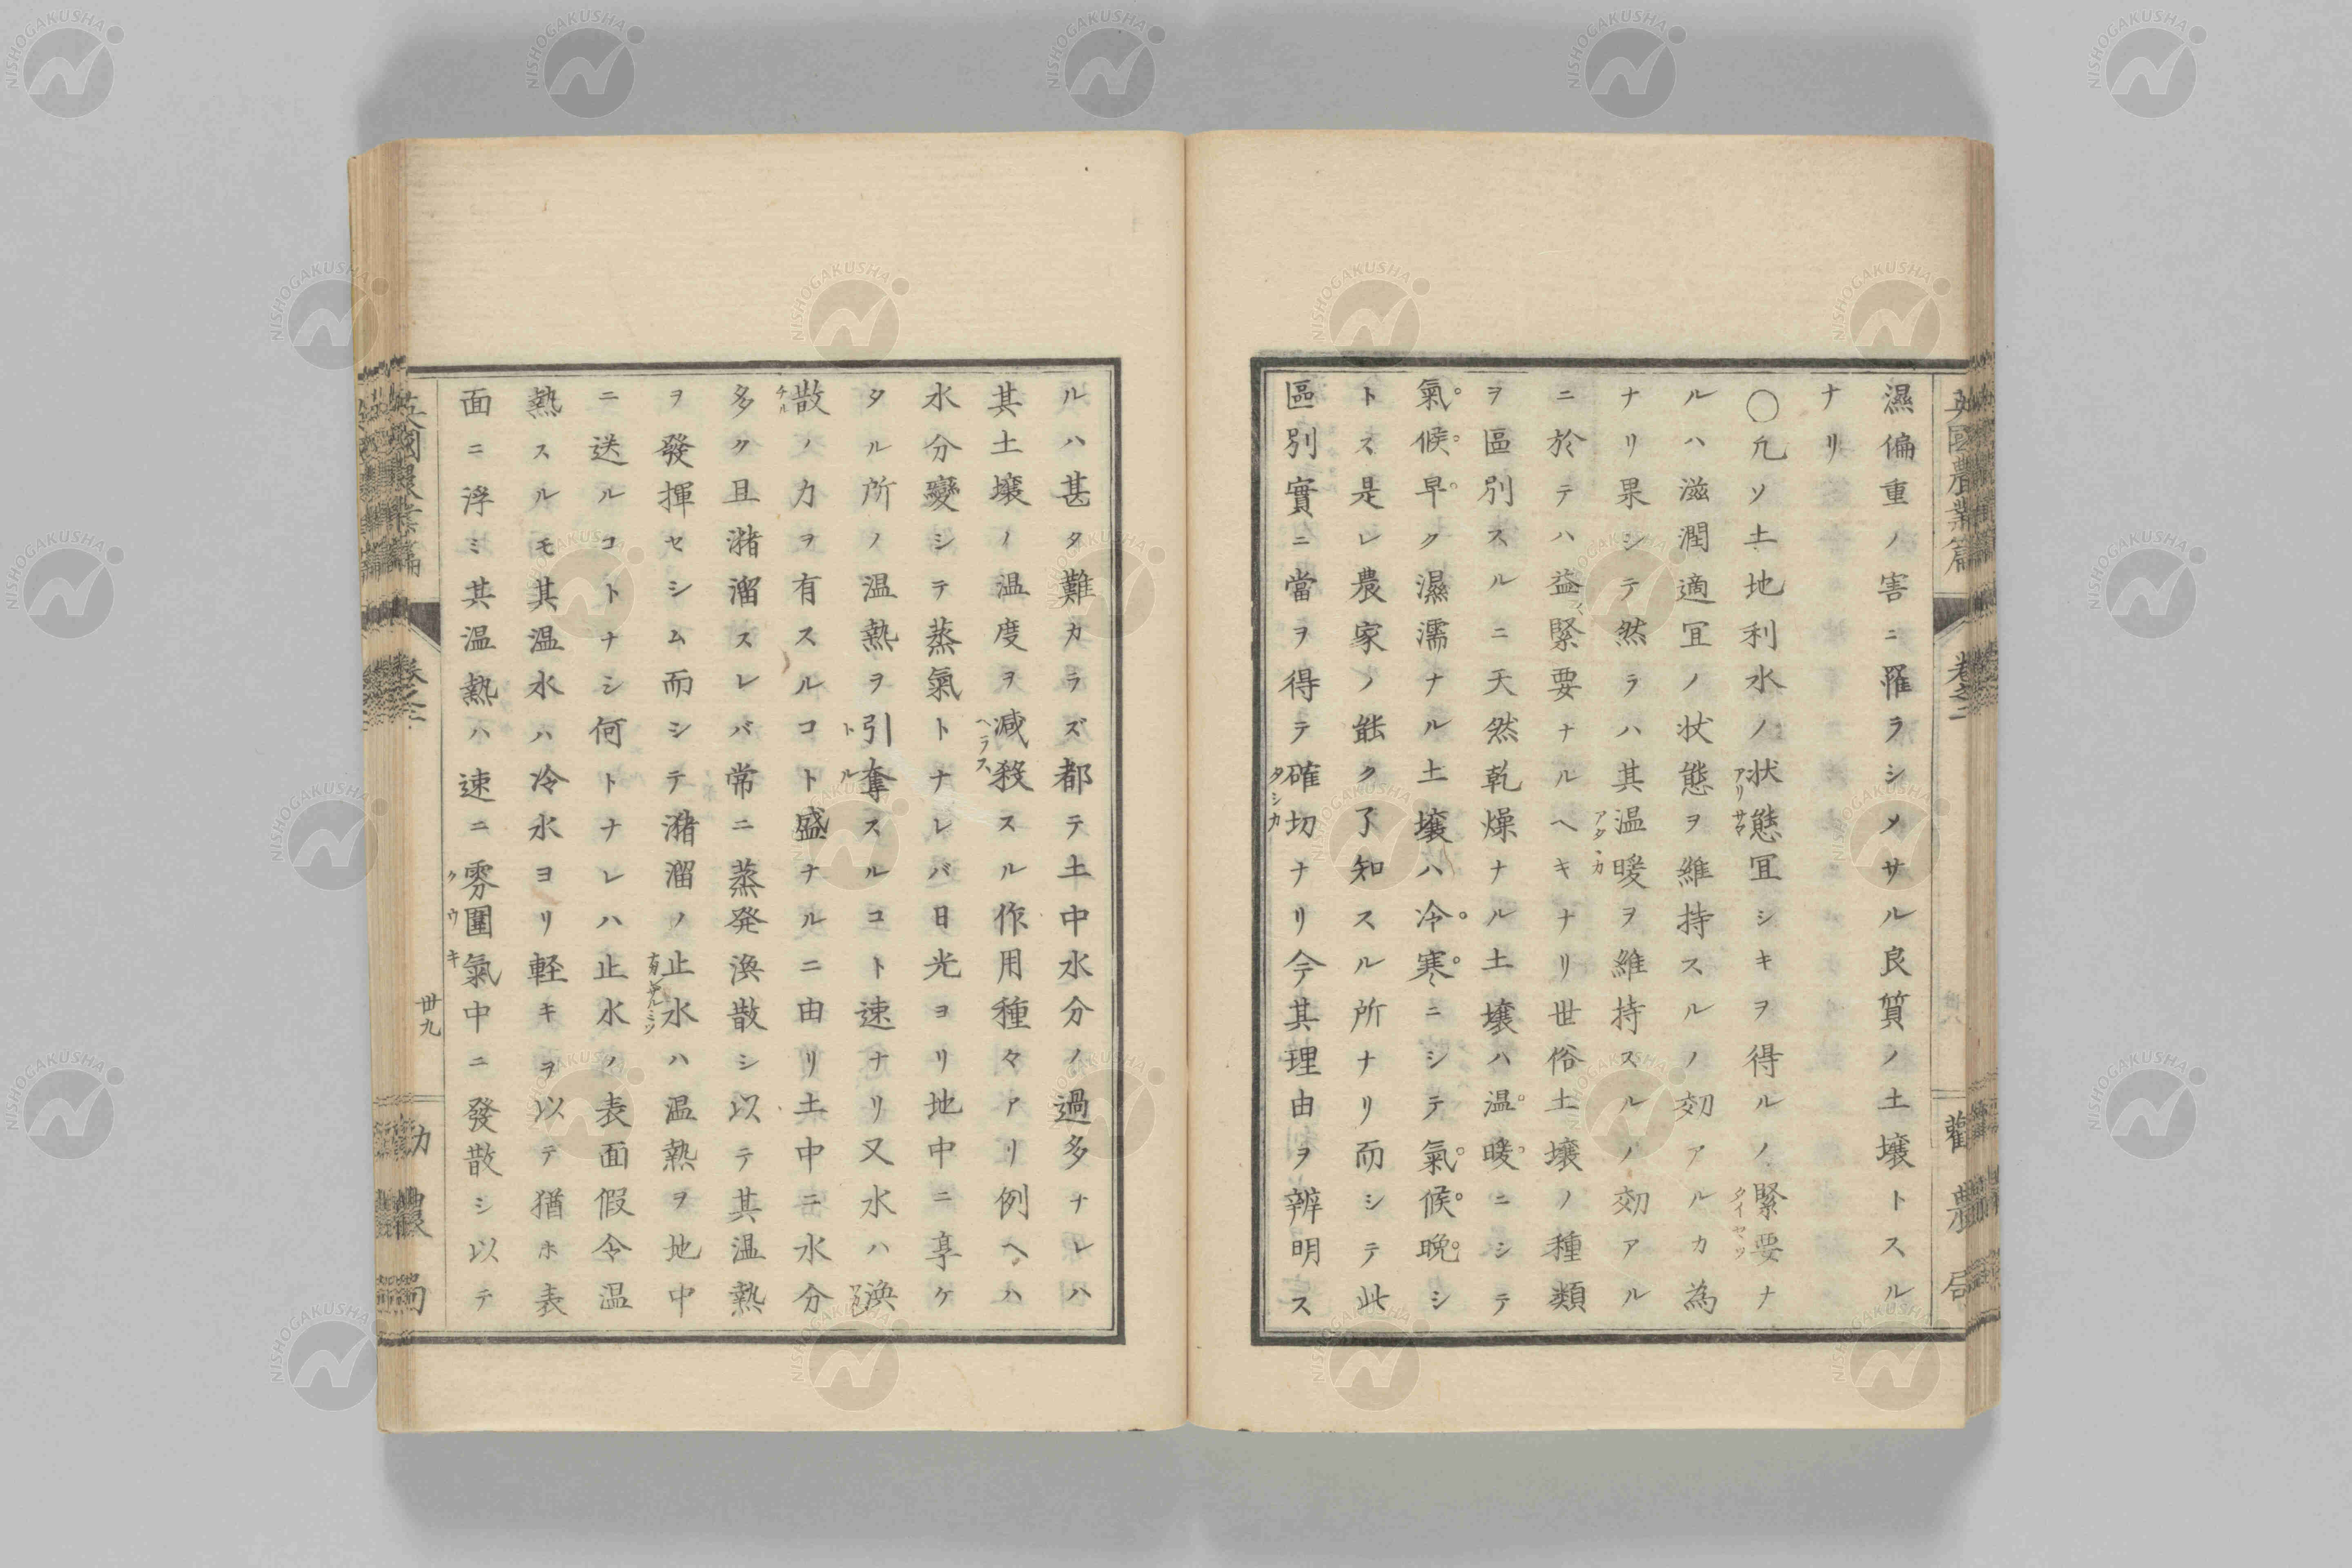 英國農業篇 卷之二 勸農局
濕偏重ノ害ニ罹ラシメサル良質ノ土壤トスル
ナリ
〇凢ソ土地利水ノ状態冝シキヲ得ルノ緊要ナ
ルハ滋潤適冝ノ状態ヲ維持スルノ効アルカ為
ナリ果シテ然ラハ其温暖ヲ維持スルノ効アル
ニ於テハ益緊要ナルヘキナリ世俗土壤ノ種類
ヲ區別スルニ天然乾燥ナル土壤ハ温暖ニシテ
氣候早ク濕濡ナル土壤ハ冷寒ニシテ氣候晩シ
トス是レ農家ノ能ク了知スル所ナリ而シテ此
區別實ニ當ヲ得テ確切ナリ今其理由ヲ辨明ス
ルハ甚タ難カラズ都テ土中水分ノ過多ナレハ
其土壤ノ温度ヲ減殺スル作用種々アリ例ヘハ
水分變シテ蒸氣トナレバ日光ヨリ地中ニ享ケ
タル所ノ温熱ヲ引奪スルコト速ナリ又水ハ渙
散ノ力ヲ有スルコト盛ナルニ由リ土中ニ水分
多ク且瀦溜スレバ常ニ蒸発渙散シ以テ其温熱
ヲ發揮セシム而シテ瀦溜ノ止水ハ温熱ヲ地中
ニ送ルコトナシ何トナレハ止水ノ表面假令温
熱スルモ其温水ハ冷水ヨリ軽キヲ以テ猶ホ表
面ニ浮ミ其温熱ハ速ニ雰圍氣中ニ發散シ以テ
英國農業篇 卷之二 丗九 勸農局
NISHOGAKUSHA